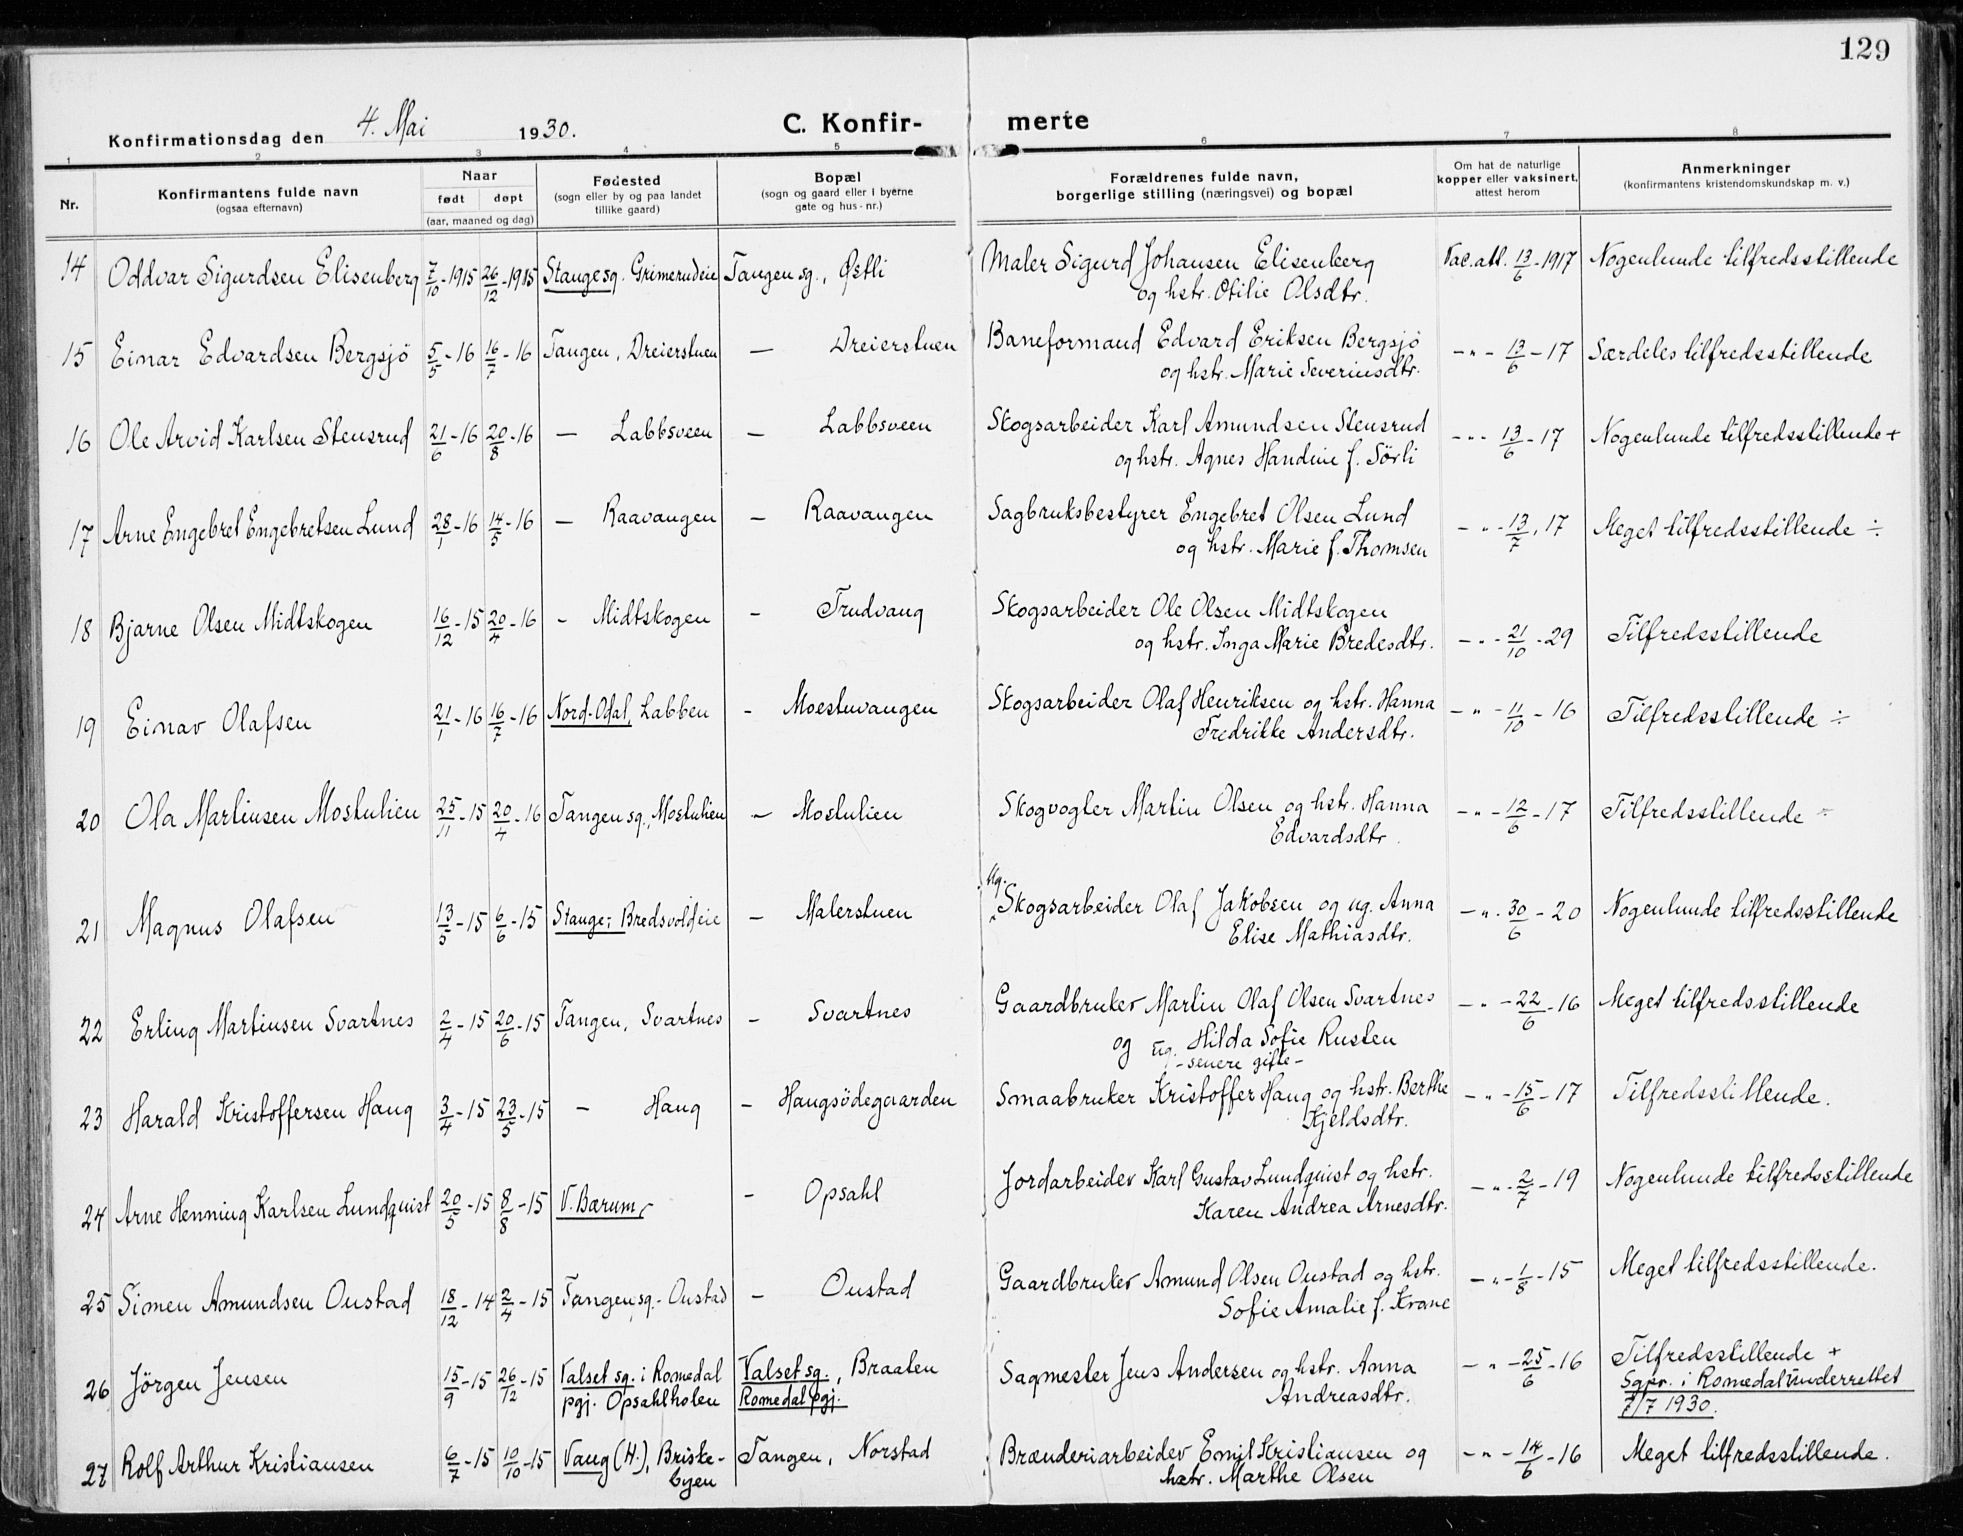 129
Konfirmationsdag den 4. Mai 1930. C. Konfir- merte
1 2 3 4 5 6 7 8
Nr. Konfirmantens fulde navn (ogsaa efternavn) Naar født døpt (aar, maaned og dag) Fødested (sogn eller by og paa landet tillike gaard) Bopæl (sogn og gaard eller i byerne gate og hus-nr.) Forældrenes fulde navn, borgerlige stilling (næringsvei) og bopæl Om hat de naturlige kopper eller vaksinert, attest herom Anmerkninger (konfirmantens kristendomskundskap m. v.)
14 Oddvar Sigurdsen Elisenberg 7/10-1915 26/12-1915 Stange sg. Grimerudeie Tangen sg., Østli Maler Sigurd Johansen Elisenberg Vac. att. 13/6-1917 Nogenlunde tilfredsstillende
og hstr. Otilie Olsdtr.
15 Einar Edvardsen Bergsjö 5/5-16 16/7-16 Tangen, Dreierstuen — Dreierstuen Baneformand Edvard Eriksen Bergsjö -"- 13/6-17 Særdeles tilfredsstillende
og hstr. Marie Severinsdtr.
16 Ole Arvid Karlsen Stensrud 21/6-16 20/8-16 — Labbsveen — Labbsveen Skogsarbeider Karl Amundsen Stensrud -"- 13/6-17 Nogenlunde tilfredsstillende +
og hstr. Agnes Handine f. Sörli
17 Arne Engebret Engebretsen Lund 28/1-16 14/5-16 — Raavangen — Raavangen Sagbruksbestyrer Engebret Olsen Lund -"- 13/7.17 Meget tilfredsstillende ÷
og hstr. Marie f. Thomsen
18 Bjarne Olsen Midtskogen 16/12-15 20/4-16 - Midtskogen - Trudvang Skogsarbeider Ole Olsen Midtskogen -"- 21/10-29 Tilfredsstillende
og hstr. Inga Marie Bredesdtr.
19 Einar Olafsen 21/1-16 16/7-16 Nord-Odal, Labben - Moestuvangen Skogsarbeider Olaf Henriksen og hstr. Hanna -"- 11/10-16 Tilfredsstillende ÷
Fredrikke Andersdtr.
20 Ola Martinsen Mostulien 25/11-15 20/4-16 Tangen sg., Mostulien — Mostulien Skogvogter Martin Olsen og hstr. Hanna -"- 12/6-17 Tilfredsstillende ÷
Edvardsdtr.
21 Magnus Olafsen 13/5-15 6/6-15 Stange; Bredsvoldeie — Malerstuen Ug. Skogsarbeider Olaf Jakobsen og ug. Anna -". 30/6-20 Nogenlunde tilfredsstillende
Elise Mathiasdtr.
22 Erling Martinsen Svartnes 2/4-15 20/6-15 Tangen, Svartnes - Svartnes Gaardbruker Martin Olaf Olsen Svartnes -"- 22/6-16 Meget tilfredsstillende
og ug. Hilda Sofie Rusten
- senere gifte -
23 Harald Kristoffersen Haug 3/4-15 23/5-15 — Haug — Haugsödegaarden Smaabruker Kristoffer Haug og hstr. Berthe -"- 15/6-17 Tilfredsstillende.
Kjeldsdtr.
24 Arne Henning Karlsen Lundquist 20/5-15 8/8-15 V. Bærum, - Opsahl Jordarbeider Karl Gustav Lundquist og hstr. -"- 2/7-19 Nogenlunde tilfredsstillende
Karen Andrea Arnesdtr.
25 Simen Amundsen Oustad 18/12-14 2/4-15 Tangen sg.- Oustad — Oustad Gaardbruker Amund Olsen Oustad og hstr. -"- 1/8-15 Meget tilfredsstillende.
Sofie Amalie f. Krane
26 Jörgen Jensen 15/9-15 26/12-15 Valset sg. i Romedal pgj. Opsahlholen Valset sg., Braaten Romedal pgj. Sagmester Jens Andersen og hstr. Anna -"- 25/6-16 Tilfredsstillende +
Andreasdtr. Sgpr. i Romedal underrettet
7/7 1930.
27 Rolf Arthur Kristiansen 6/7-15 10/10-15 Vang (H.), Briske- Tangen, Norstad Brænderiarbeider Emil Kristiansen og -"- 14/6-16 Meget tilfredsstillende.
byen hstr. Marthe Olsen